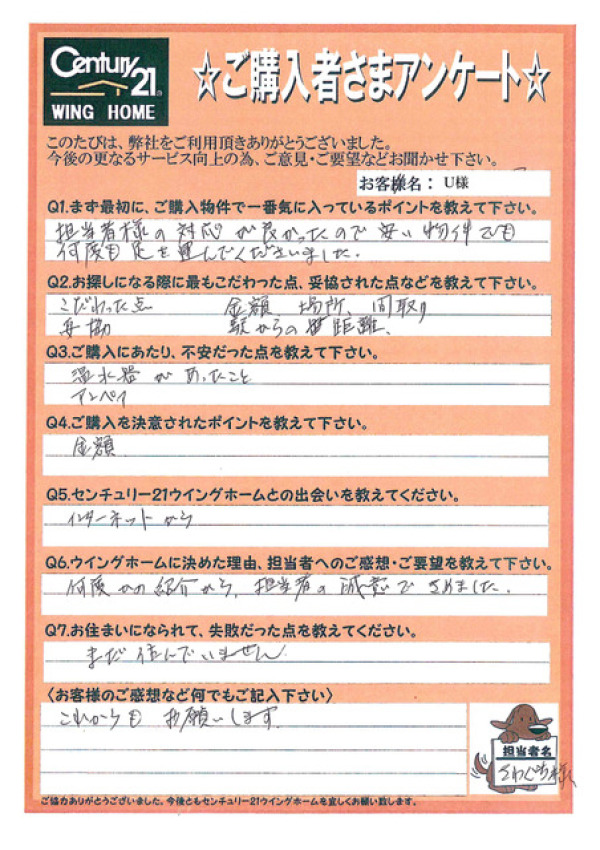 Century 21
WING HOME
☆ご購入者さまアンケート☆
このたびは、弊社をご利用頂きありがとうございました。
今後の更なるサービス向上の為、ご意見・ご要望などお聞かせ下さい。
お客様名：U様
Q1.まず最初に、ご購入物件で一番気に入っているポイントを教えて下さい。
担当者様の対応が良かったので安い物件でも
何度も足を運んでくださいました.
Q2.お探しになる際に最もこだわった点、妥協された点などを教えて下さい。
こだわった点 金額、場所、間取り
妥協 駅からの距離、
Q3.ご購入にあたり、不安だった点を教えて下さい。
温水器があったこと
アンペイ
Q4.ご購入を決意されたポイントを教えて下さい。
金額
Q5.センチュリー21ウイングホームとの出会いを教えてください。
インターネットから
Q6.ウイングホームに決めた理由、担当者へのご感想・ご要望を教えて下さい。
何度かの紹介から、担当者の誠意できめました.
Q7.お住まいになられて、失敗だった点を教えてください。
まだ住んでいません
〈お客様のご感想など何でもご記入下さい〉
これからもお願いします
担当者名
さわぐち様
ご協力ありがとうございました。今後ともセンチュリー21ウイングホームを宜しくお願い致します。